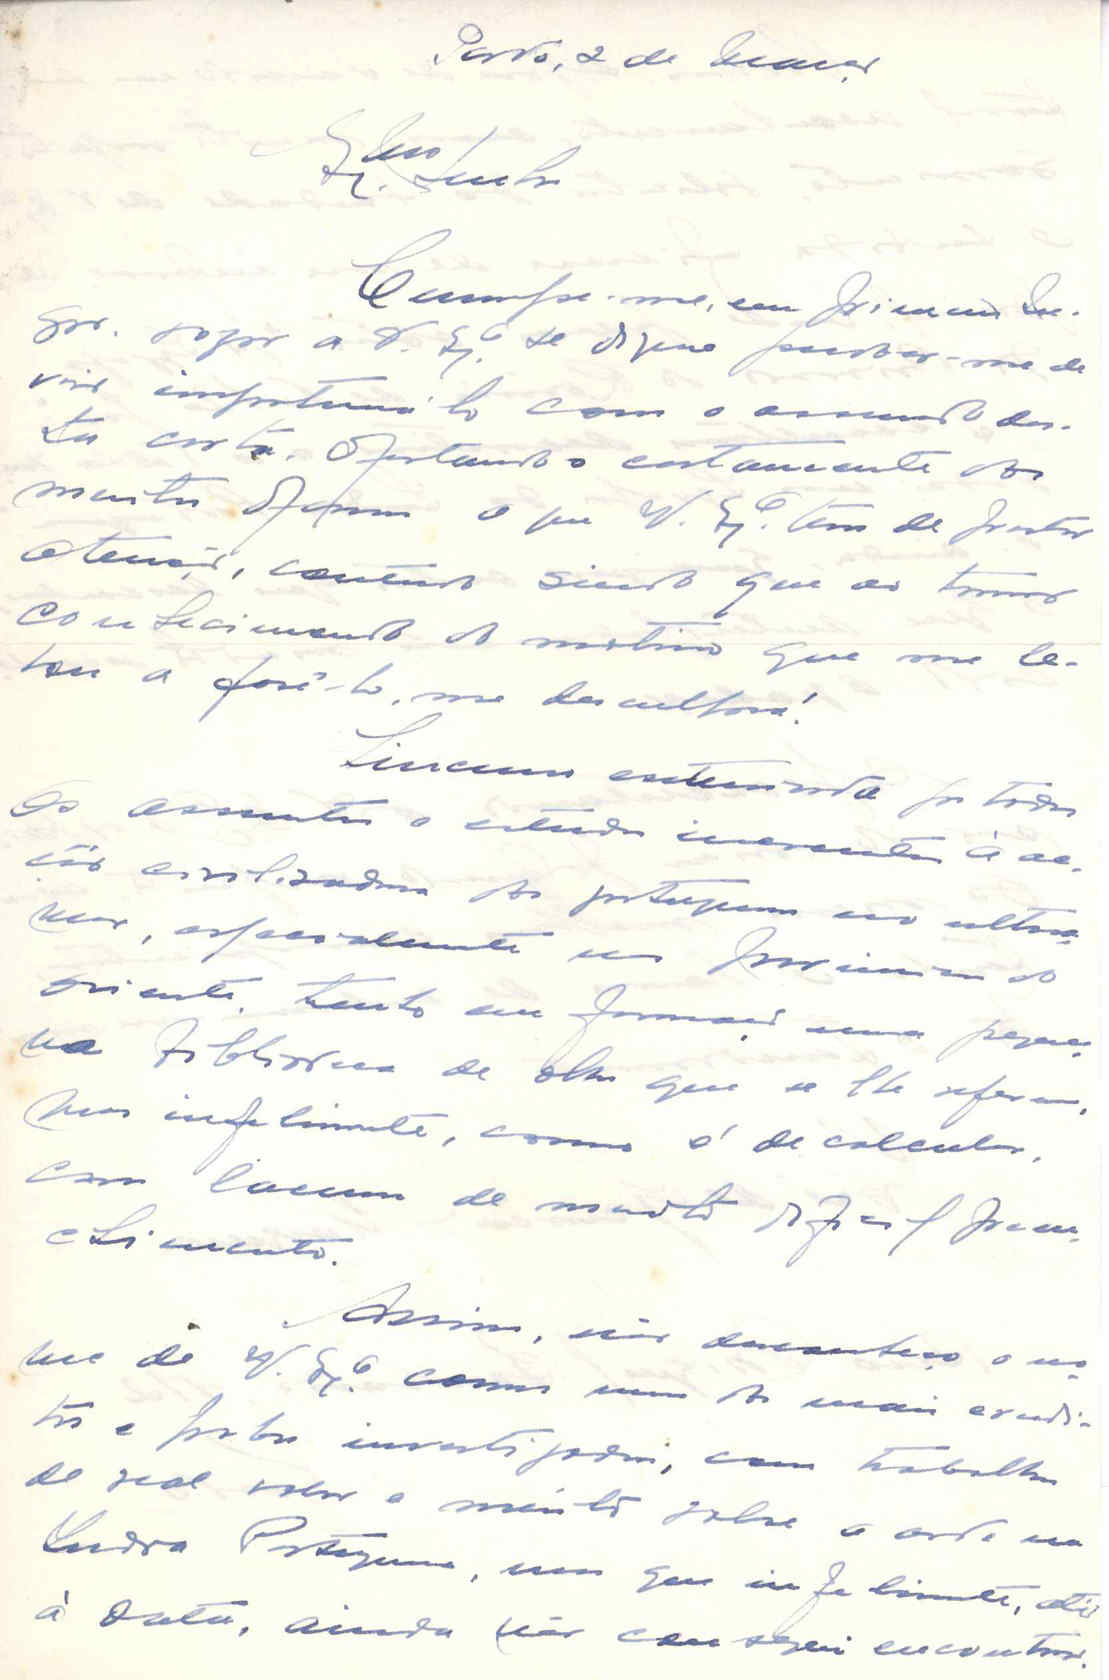 Porto, 2 de Março
Exmo
Senhor
Cumpre-me, em primeiro lu-
gar, rogar a V. Exª. se digne perdoar-me de
vir importuná-lo com o assunto des-
ta carta, afastando-o certamente dos
muitos afazeres a que V. Exª. tem de prestar
atenção, contudo siendo que ao tomar
conhecimento do motivo que me le-
vou a fazê-lo, me desculpará!
Sincero entusiasta por todos
os assuntos e estudos inerentes à ac-
ção civilizadora dos portugueses no ultra-
mar, especialmente nas Províncias do
oriente, tenho em formação uma peque-
na biblioteca de obras que se lhe referem,
mas infelizmente, como é de calcular,
com lacunas de muito difícil preen-
chimento.
Assim, não desconheço o no-
me de V. Exª. como um dos mais erudi-
tos e probos investigadores, com trabalhos
de real valor e mérito sobre a arte na
Índia Portuguesa, mas que infelizmente, até
à data, ainda não consegui encontrar.